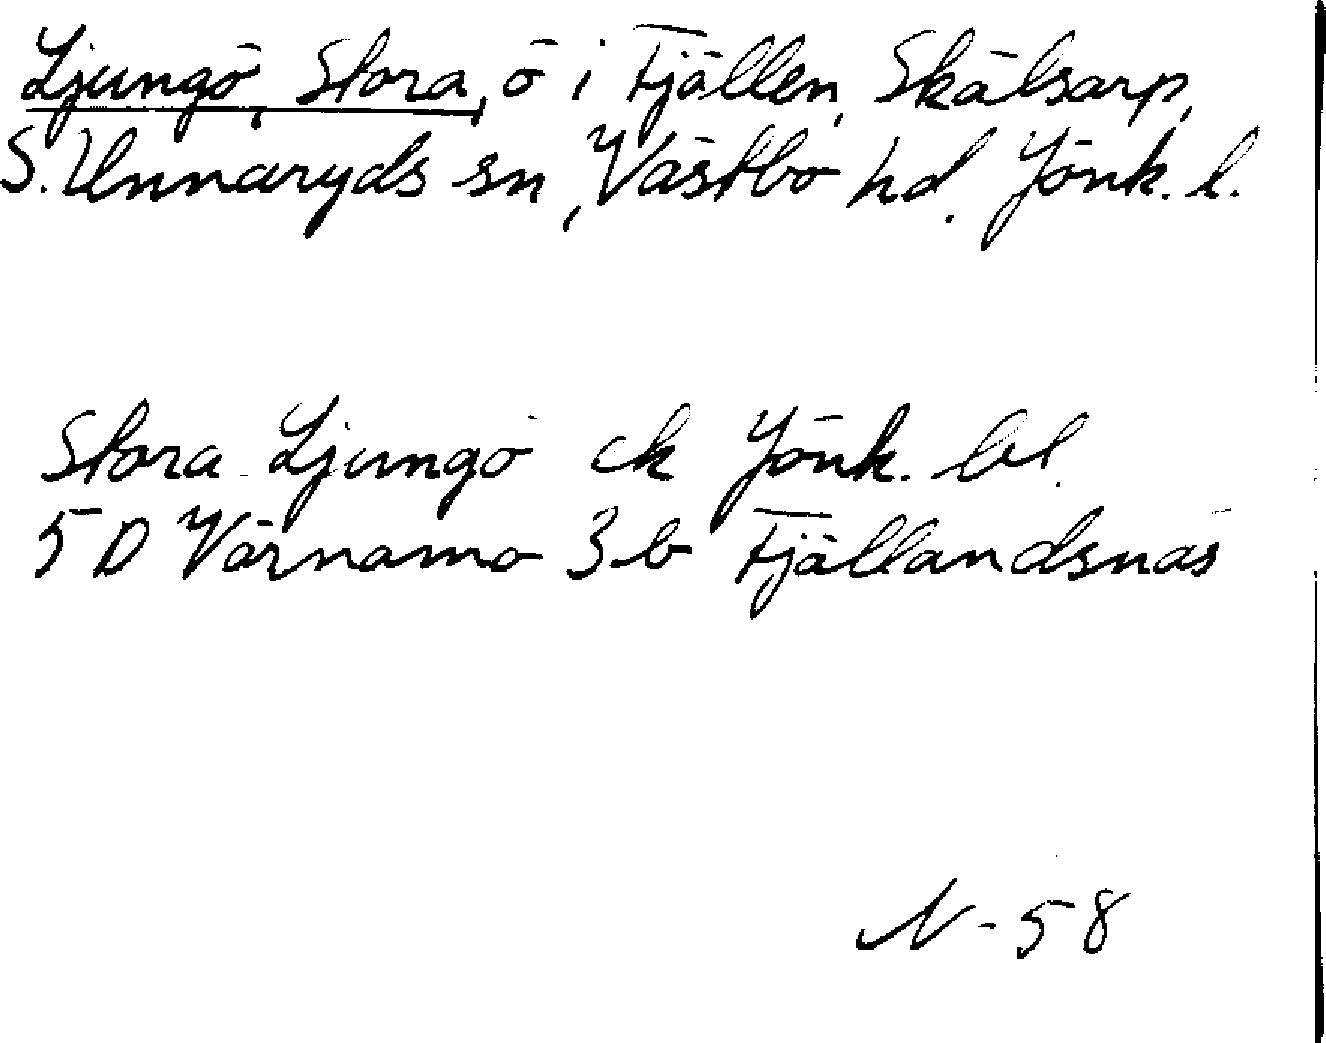 Ljungö, Stora, ö i Fjällen, Skälsarp,
S. Unnaryds sn, Västbo hd. Jönk. l.
Stora Ljungö ek Jönk. bl.
5 D Värnamo 3 b Fjällandsnäs
N - 58